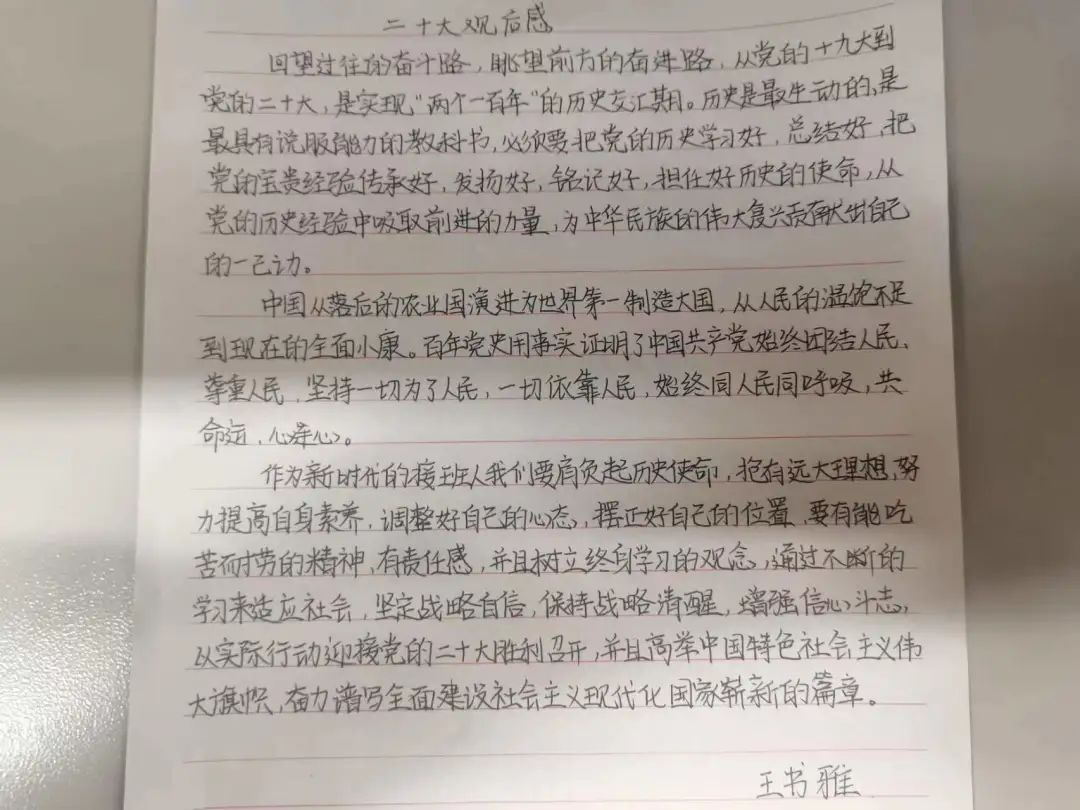 二十大观后感
回望过往的奋斗路，眺望前方的奋进路，从党的十九大到
党的二十大，是实现“两个一百年”的历史交汇期。历史是最生动的、是
最具有说服能力的教科书，必须要把党的历史学习好，总结好，把
党的宝贵经验传承好，发扬好，铭记好，担任好历史的使命，从
党的历史经验中吸取前进的力量，为中华民族的伟大复兴贡献出自己
的一己力。
中国从落后的农业国演进为世界第一制造大国，从人民的温饱不足
到现在的全面小康。百年党史用事实证明了中国共产党始终团结人民、
尊重人民，坚持一切为了人民，一切依靠人民，始终同人民同呼吸，共
命运，心连心。
作为新时代的接班人我们要肩负起历史使命，抱有远大理想，努
力提高自身素养，调整好自己的心态，摆正好自己的位置，要有能吃
苦耐劳的精神，有责任感，并且树立终身学习的观念，通过不断的
学习来适应社会，坚定战略自信，保持战略清醒，增强信心斗志，
从实际行动迎接党的二十大胜利召开，并且高举中国特色社会主义伟
大旗帜，奋力谱写全面建设社会主义现代化国家崭新的篇章。
王书雅